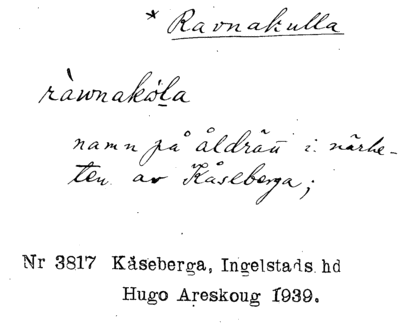 * Ravnakulla
ràwnaköla
namn på åldrän i närhe-
ten av Kåseberga;
Nr 3817 Kåseberga, Ingelstads hd
Hugo Areskoug 1939.